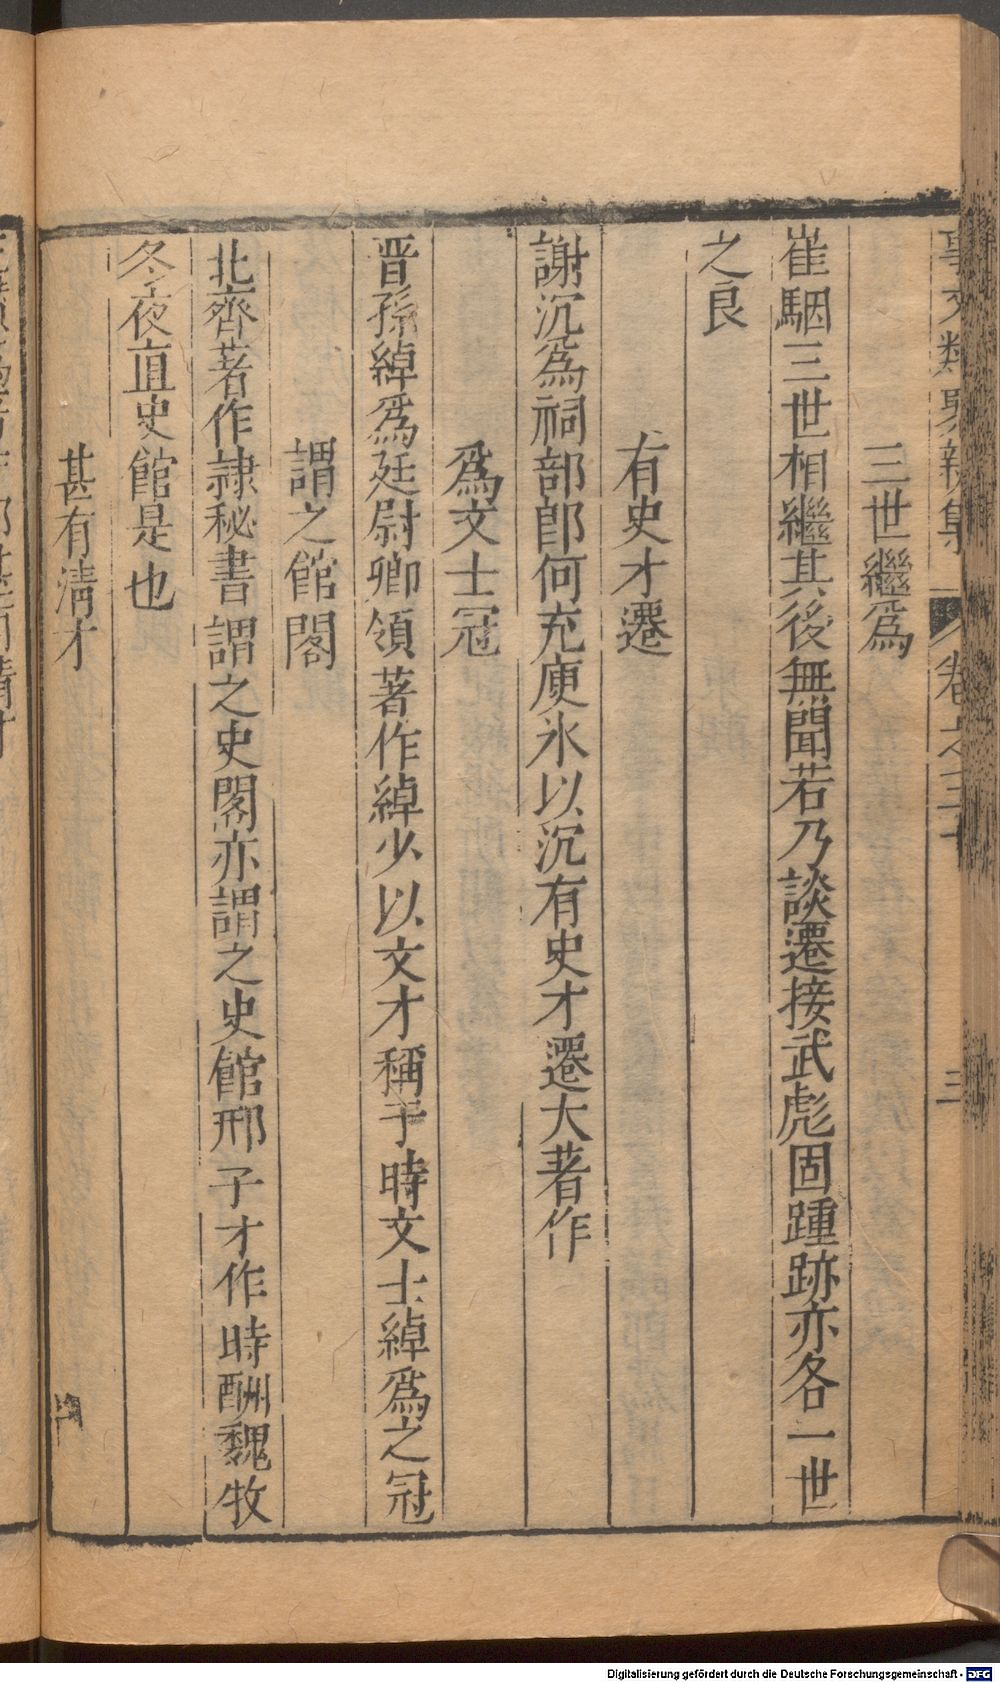 事文類聚新集 卷之三十 三
三世繼爲
崔駰三世相繼其後無聞若乃談遷接武彪固踵跡亦各一世
之良
有史才遷
謝沉爲祠部郎何充庾氷以沉有史才遷大著作
爲文士冠
晋孫綽爲廷尉卿領著作綽少以文才稱于時文士綽爲之冠
謂之館閣
北齊著作隷秘書謂之史閣亦謂之史館邢子才作時酬魏牧
冬夜直史館是也
甚有淸才
Digitalisierung gefördert durch die Deutsche Forschungsgemeinschaft - DFG